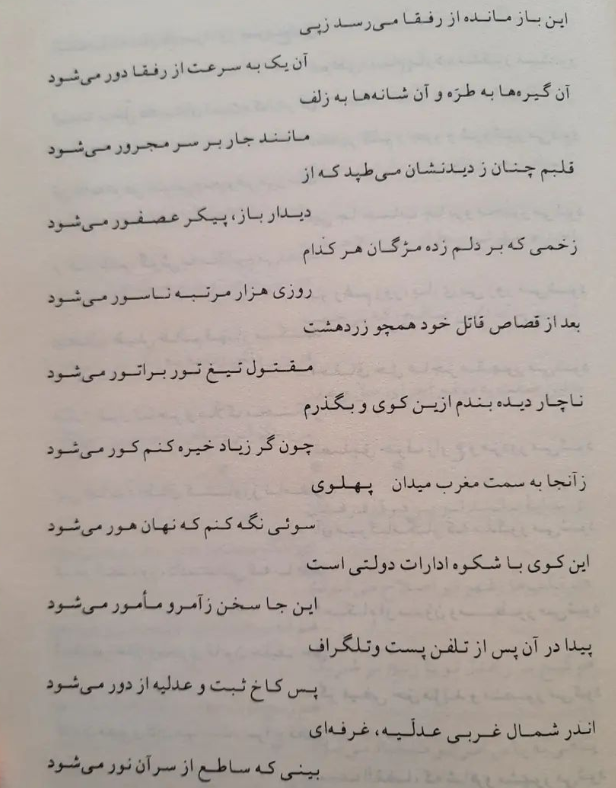 این باز مانده از رفقا می‌رسد زپی
آن یک به سرعت از رفقا دور می‌شود
آن گیره‌ها به طرّه و آن شانه‌ها به زلف
مانند جار بر سر مجرور می‌شود
قلبم چنان ز دیدنشان می‌طپد که از
دیدار باز، پیکر عصفور می‌شود
زخمی که بر دلم زده مژگان هر کدام
روزی هزار مرتبه ناسور می‌شود
بعد از قصاص قاتل خود همچو زردهشت
مقتول تیغ تور براتور می‌شود
ناچار دیده بندم ازین کوی و بگذرم
چون گر زیاد خیره کنم کور می‌شود
زآنجا به سمت مغرب میدان پهلوی
سوئی نگه کنم که نهان هور می‌شود
این کوی با شکوه ادارات دولتی است
این جا سخن زآمرو مأمور می‌شود
پیدا در آن پس از تلفن پست وتلگراف
پس کاخ ثبت و عدلیه از دور می‌شود
اندر شمال غربی عدلّیه، غرفه‌ای
بینی که ساطع از سرآن نور می‌شود